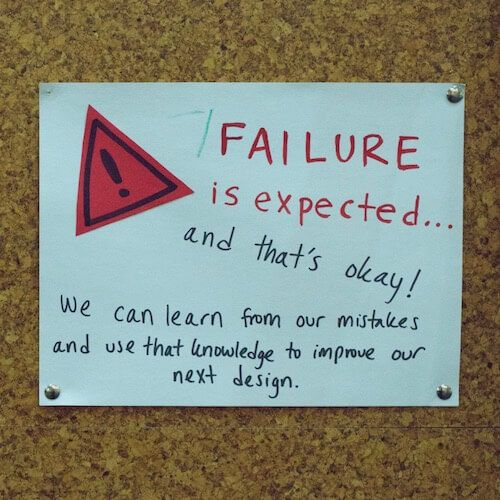 FAILURE
is expected...
and that's okay!
We can learn from our mistakes
and use that knowledge to improve our
next design.